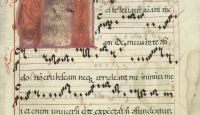 te levavi
Deus meus in te
do non erubescam neq irrideant me inimici me
et enim universi qui te expectant non confundentur